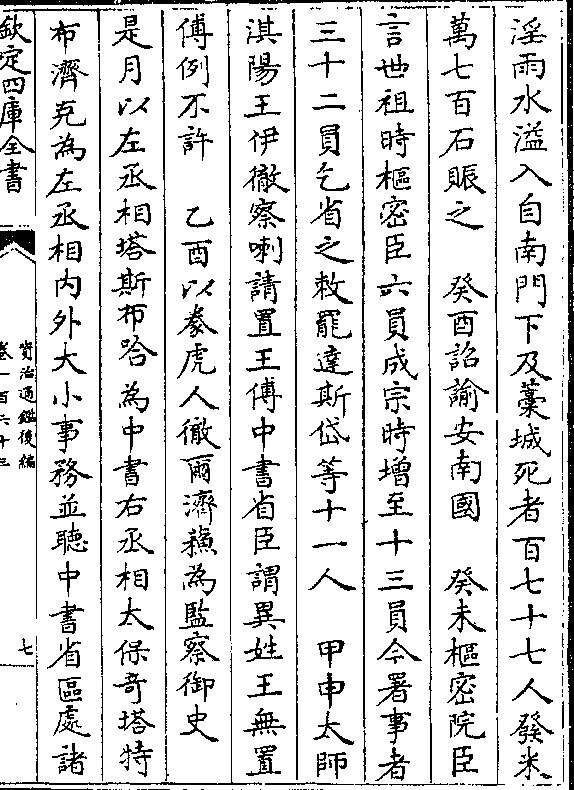 淫雨水溢入自南門下及藁城死者百七十七人發米
萬七百石賑之　癸酉詔諭安南國　癸未樞密院臣
言世祖時樞密臣六員成宗時增至十三員今署事者
三十二員乞省之敕罷達斯岱等十一人　甲申太師
淇陽王伊徹察喇請置王傅中書省臣謂異姓王無置
傅例不許　乙酉以豢虎人徹爾濟蘓為監察御史
是月以左丞相塔斯布哈為中書右丞相太保奇塔特
布濟克為左丞相内外大小事務並聽中書省區處諸
欽定四庫全書
資治通鑑後編
卷一百六十三
七